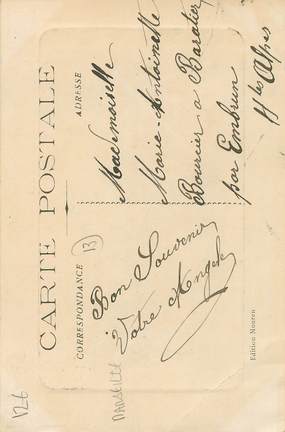 CARTE POSTALE
CORRESPONDANCE
ADRESSE
13
Bon Souvenir
Votre Angèle
Mademoiselle
Marie-Antoinette
Bourcier a Baratier
par Embrun
Htes Alpes
Edition Nouren
MARSEILLE
12-6